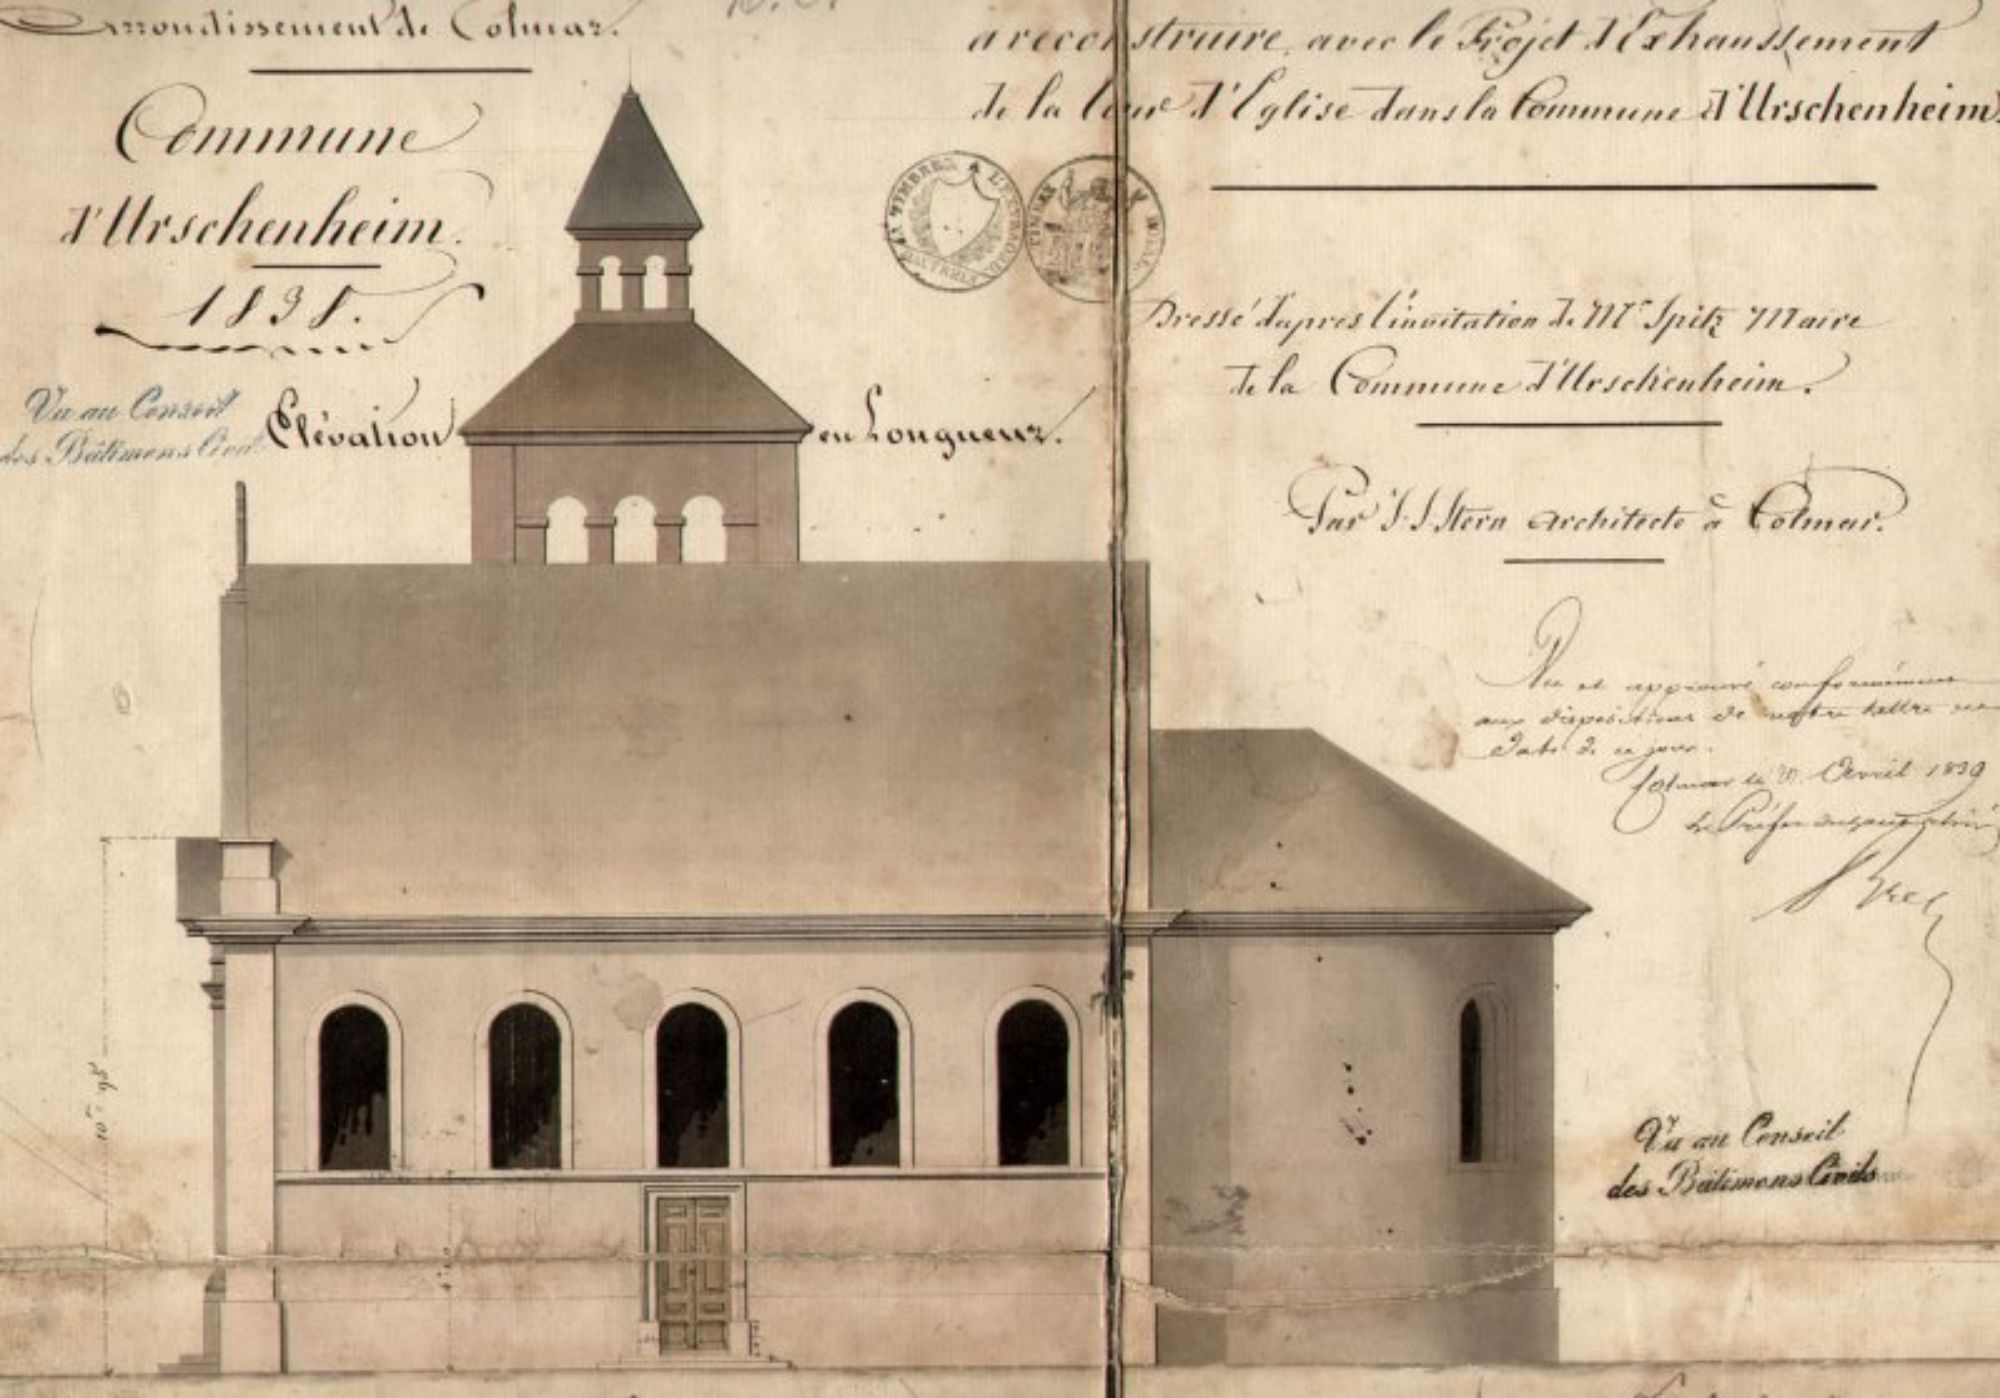 Arrondissement de Colmar.
Commune
d'Urschenheim.
1838.
Vu au Conseil
des Bâtimens Civils
Elévation en Longueur.
a reconstruire, avec le Projet d'Exhaussement
de la Tour d'Eglise dans la Commune d'Urschenheim
Dressé d'apres l'invitation de Mr Spitz Maire
de la Commune d'Urschenheim.
Par J. J. Stern architecte à Colmar.
Vu et approuvé conformément
aux dispositions de notre lettre en
date de ce jour.
Colmar le Avril 1839
Le Préfet
Vu au Conseil
des Bâtimens Civils
10m 98